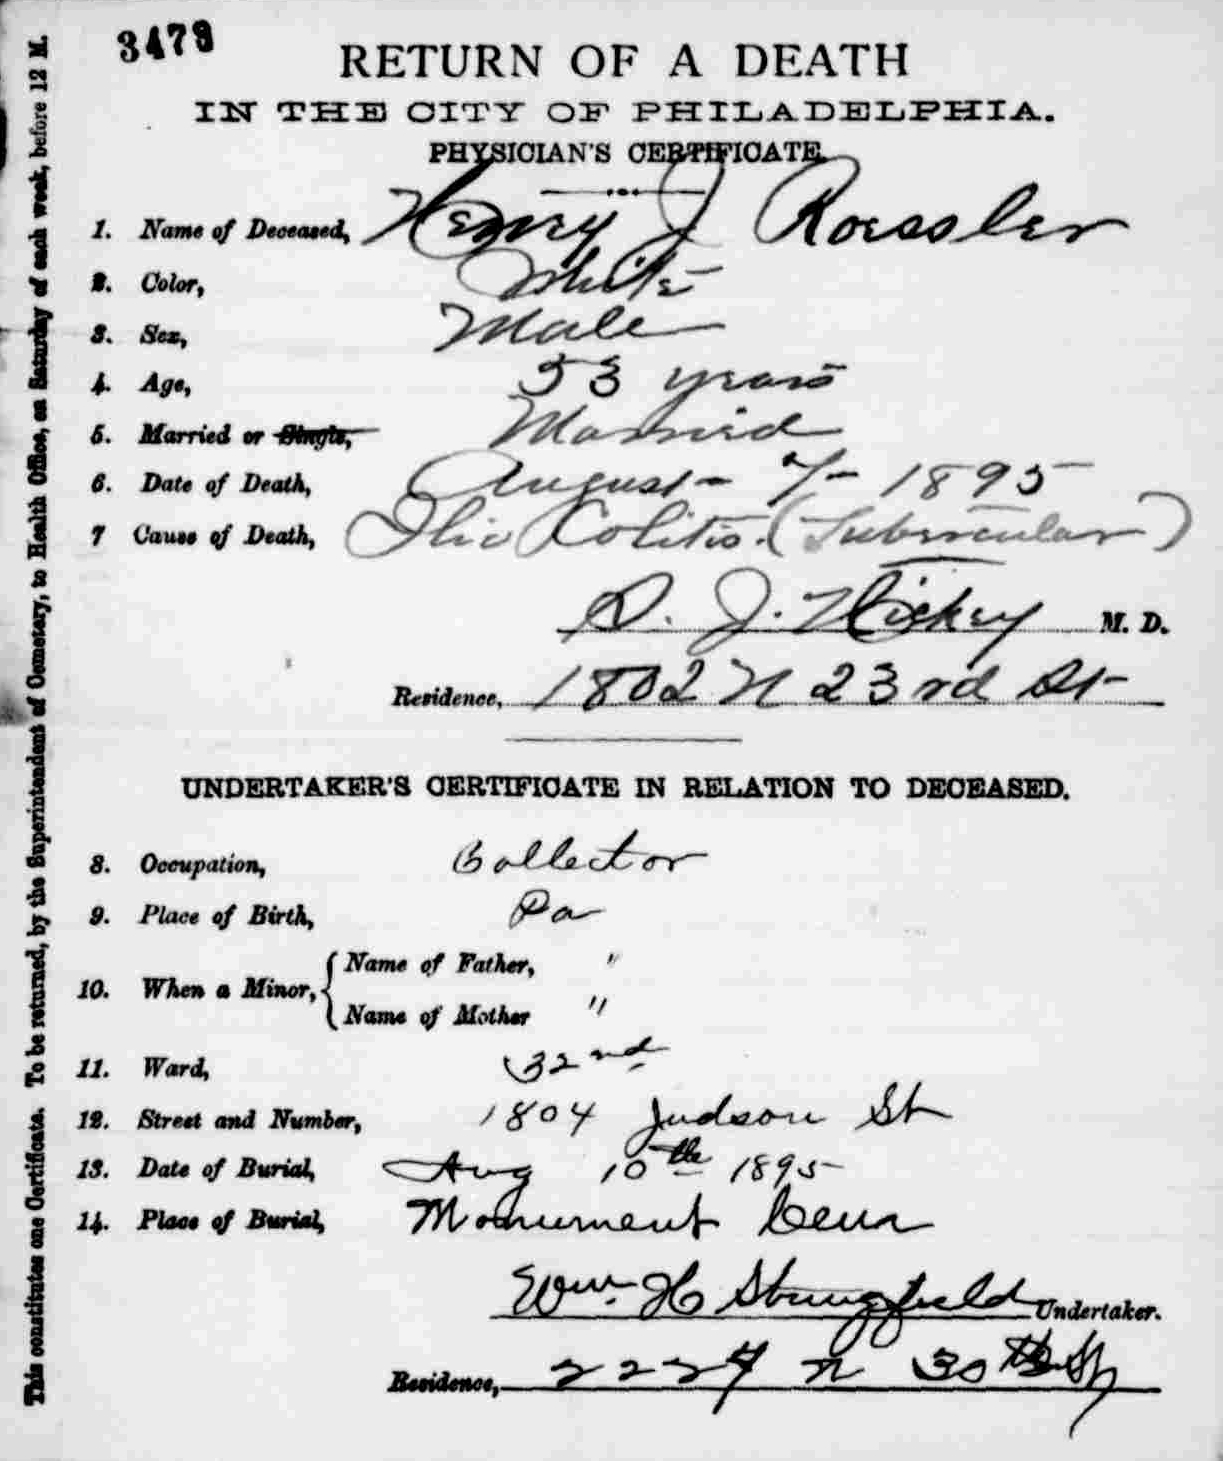 3479
RETURN OF A DEATH
IN THE CITY OF PHILADELPHIA.
PHYSICIAN'S CERTIFICATE.
1. Name of Deceased, Henry J Roessler
2. Color, White
3. Sex, Male
4. Age, 53 years
5. Married or Single, Married
6. Date of Death, August 7 - 1895
7 Cause of Death, Ilio Colitis. (Tubercular)
D. J. Hickey M. D.
Residence, 1802 N 23rd St
UNDERTAKER'S CERTIFICATE IN RELATION TO DECEASED.
8. Occupation, Collector
9. Place of Birth, Pa
10. When a Minor, { Name of Father, "
Name of Mother "
11. Ward, 32nd
12. Street and Number, 1804 Judson St
13. Date of Burial, Aug 10th 1895
14. Place of Burial, Monument Cem
Wm. H Stringfield Undertaker.
Residence, 2224 N 30th St
This constitutes one Certificate. To be returned, by the Superintendent of Cemetary, to Health Office, on Saturday of each week, before 12 M.